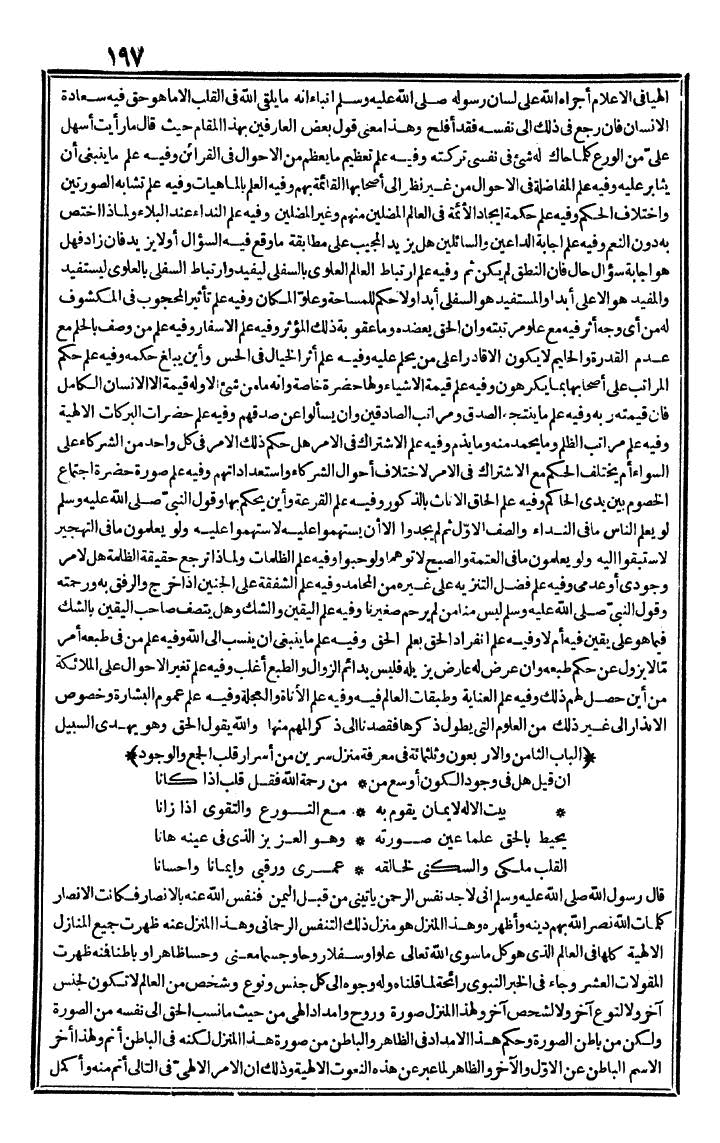 ١٩٧
الهيا فى الاعلام أجراه الله على لسان رسوله صلى الله عليه وسلم انباء انه ما يلقى الله فى القلب الا ما هو حق فيه سعادة
الانسان فان رجع فى ذلك الى نفسه فقد أفلح وهذا معنى قول بعض العارفين بهذا المقام حيث قال ما رأيت أسهل
علىّ من الورع كلما حاك له شئ فى نفسى تركته وفيه علم تعظيم ما يعظم من الاحوال فى القرائن وفيه علم ما ينبغى أن
يثابر عليه وفيه علم المفاضلة فى الاحوال من غير نظر الى أصحابها القائمة بهم وفيه العلم بالماهيات وفيه علم تشابه الصورتين
واختلاف الحكم وفيه علم حكمة ايجاد الأئمة فى العالم المضلين منهم وغير المضلين وفيه علم النداء عند البلاء ولماذا اختص
به دون النعم وفيه علم اجابة الداعين والسائلين هل يزيد المجيب على مطابقة ما وقع فيه السؤال أو لا يزيد فان زاد فهل
هو اجابة سؤال حال فان النطق لم يكن ثم وفيه علم ارتباط العالم العلوى بالسفلى ليفيد وارتباط السفلى بالعلوى ليستفيد
والمفيد هو الاعلى أبدا والمستفيد هو السفلى أبدا ولا حكم للمساحة وعلوّ المكان وفيه علم تأثير المحجوب فى المكشوف
له من أى وجه أثر فيه مع علو مرتبته وان الحق يعضده وما عقوبة ذلك المؤثر وفيه علم الاسفار وفيه علم من وصف بالحلم مع
عدم القدرة والحليم لا يكون الا قادرا على من يحلم عليه وفيه علم أثر الخيال فى الحس وأين يبلغ حكمه وفيه علم حكم
المراتب على أصحابها بما يكرهون وفيه علم قيمة الاشياء ولها حضرة خاصة وانه ما من شئ الا وله قيمة الا الانسان الكامل
فان قيمته ربه وفيه علم ما ينتجه الصدق ومراتب الصادقين وان يسألوا عن صدقهم وفيه علم حضرات البركات الالهية
وفيه علم مراتب الظلم وما يحمد منه وما يذم وفيه علم الاشتراك فى الامر هل حكم ذلك الامر فى كل واحد من الشركاء على
السواء أم يختلف الحكم مع الاشتراك فى الامر لاختلاف أحوال الشركاء واستعداداتهم وفيه علم صورة حضرة اجتماع
الخصوم بين يدى الحاكم وفيه علم الحاق الاناث بالذكور وفيه علم القرعة وأين يحكم بها وقول النبىّ صلى الله عليه وسلم
لو يعلم الناس ما فى النداء والصف الاوّل ثم لم يجدوا الا أن يستهموا عليه لاستهموا عليه ولو يعلمون ما فى التهجير
لاستبقوا اليه ولو يعلمون ما فى العتمة والصبح لاتوهما ولو حبوا وفيه علم الظلمات ولماذا ترجع حقيقة الظلمة هل لامر
وجودى أو عدمى وفيه علم فضل التنزيه على غيره من المحامد وفيه علم الشفقة على الجنين اذا خرج والرفق به ورحمته
وقول النبىّ صلى الله عليه وسلم ليس منا من لم يرحم صغيرنا وفيه علم اليقين والشك وهل يتصف صاحب اليقين بالشك
فيما هو على يقين فيه أم لا وفيه علم انفراد الحق بعلم الحق وفيه علم ما ينبغى ان ينسب الى الله وفيه علم من فى طبعه أمر
مّا لا يزول عن حكم طبعه وان عرض له عارض يزيله فليس بدائم الزوال والطبع أغلب وفيه علم تغير الاحوال على الملائكة
من أين حصل لهم ذلك وفيه علم العناية وطبقات العالم فيه وفيه علم الأناة والعجلة وفيه علم عموم البشارة وخصوص
الانذار الى غير ذلك من العلوم التى يطول ذكرها فقصدنا الى ذكر المهم منها والله يقول الحق وهو يهدى السبيل
﴿الباب الثامن والاربعون وثلثمائة فى معرفة منزل سرين من أسرار قلب الجمع والوجود﴾
ان قيل هل فى وجود الكون أوسع من * من رحمة الله فقل قلب اذا كانا
* بيت الاله لايمان يقوم به * مع التورع والتقوى اذا زانا
يحيط بالحق علما عين صورته * وهو العزيز الذى فى عينه هانا
القلب ملكى والسكنى لخالقه * عمرى ورقبى وايمانا واحسانا
قال رسول الله صلى الله عليه وسلم انى لاجد نفس الرحمن يأتينى من قبل اليمن فنفس الله عنه بالانصار فكانت الانصار
كلمات الله نصر الله بهم دينه وأظهره وهذا المنزل هو منزل ذلك التنفس الرحمانى وهذا المنزل عنه ظهرت جميع المنازل
الالهية كلها فى العالم الذى هو كل ما سوى الله تعالى علوا وسفلا وروحا وجسما معنى وحسا ظاهرا وباطنا فنه ظهرت
المقولات العشر وجاء فى الخبر النبوى رائحة لما قلناه وله وجوه الى كل جنس ونوع وشخص من العالم لا تكون لجنس
آخر ولا لنوع آخر ولا لشخص آخر ولهذا المنزل صورة وروح وامداد الهى من حيث ما نسب الحق الى نفسه من الصورة
ولكن من باطن الصورة وحكم هذا الامداد فى الظاهر والباطن من صورة هذا المنزل لكنه فى الباطن أتم ولهذا أخر
الاسم الباطن عن الاوّل والآخر والظاهر لما عبر عن هذه النعوت الالهية وذلك ان الامر الالهىّ فى التالى أتم منه وأكمل